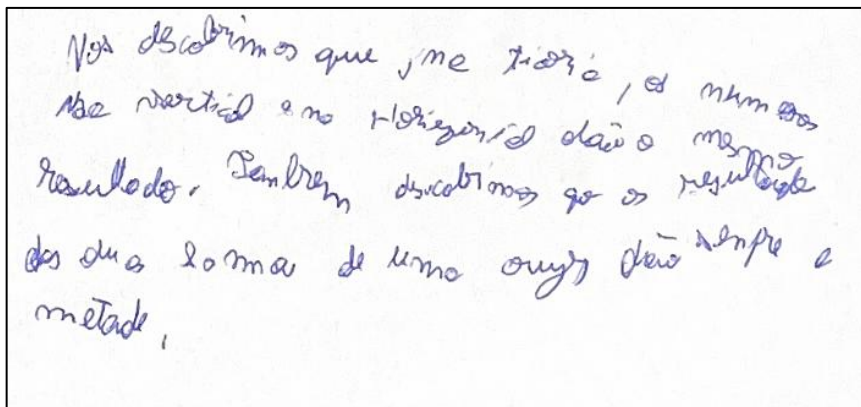 Nós descobrimos que, na tioria, os numeros
na vertical e no Horizontal dão o mesmo
resultado. Tambem descobrimos qe os resultado
das duas soma de uma dão senpre a
metade,